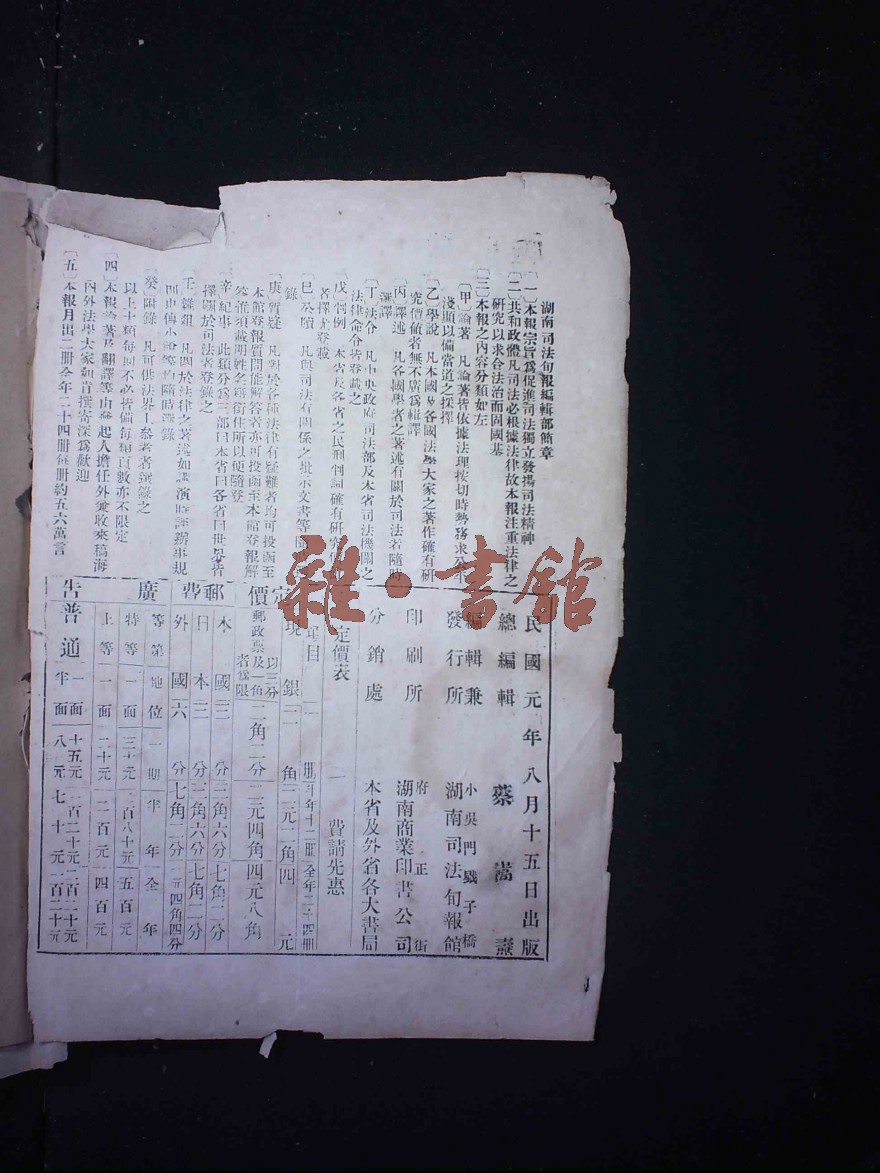 湖南司法旬報編輯部簡章
〔一〕本報宗旨爲促進司法獨立發揚司法精神
〔二〕共和政體凡司法必根據法律故本報注重法律之
研究以求合法治而固國基
〔三〕本報之內容分類如左
〔甲〕論著 凡論著皆依據法理按切時勢務求公平
淺顯以備當道之採擇
〔乙〕學說 凡本國及各國法學大家之著作確有研
究價値者無不廣爲輯譯
〔丙〕譯述 凡各國學者之著述有關於司法者隨時
選譯
〔丁〕法令 凡中央政府司法部及本省司法機關之
法律命令皆登載之
〔戊〕判例 本省及各省之民刑判詞確有研究
者擇尤登載
〔巳〕公牘 凡與司法有關係之批示文書等
錄
〔庚〕質疑 凡對於各種法律有疑難者均可投函至
本館登報質問能解答者亦可投函至本館登報解
答惟須載明姓名籍銜住所以便隨登
〔辛〕紀事 此類分爲三部曰本省曰各省曰世界皆
擇關於司法者登錄之
〔壬〕雜錄 凡關於法律之著述如講演時評辦事規
則史傳小說等均隨時選錄
〔癸〕附錄 凡可供法界上參考者選錄之
以上十類每冊不必皆備每類頁數亦不限定
〔四〕本報論著及翻譯等由發起人擔任外兼收來稿海
內外法學大家如肯撰寄深爲歡迎
〔五〕本報月出二冊全年二十四冊每冊約五六萬言
民國元年八月十五日出版
總編輯 蔡嵩
編輯兼
發行所 小吳門 子橋
湖南司法旬報館
印刷所 府正街
湖南商業印書公司
分銷處 本省及外省各大書局
定價表 費請先惠
定價 郵費
冊 半年十二冊 全年二十四冊
現銀 二角 二元二角 四元
郵政票及一角以三分者爲限 二角二分 二元四角 四元八角
本國 三分 三角六分 七角二分
日本 三分 三角六分 七角二分
外國 六分 七角二分 一元四角四分
廣告
等第 地位 一期 半年 全年
特等 一面 三十元 二百八十元 五百元
上等 一面 二十元 二百元 四百元
普通 一面 十五元 一百二十元 二百二十元
半面 八元 七十元 一百二十元
雜·書館